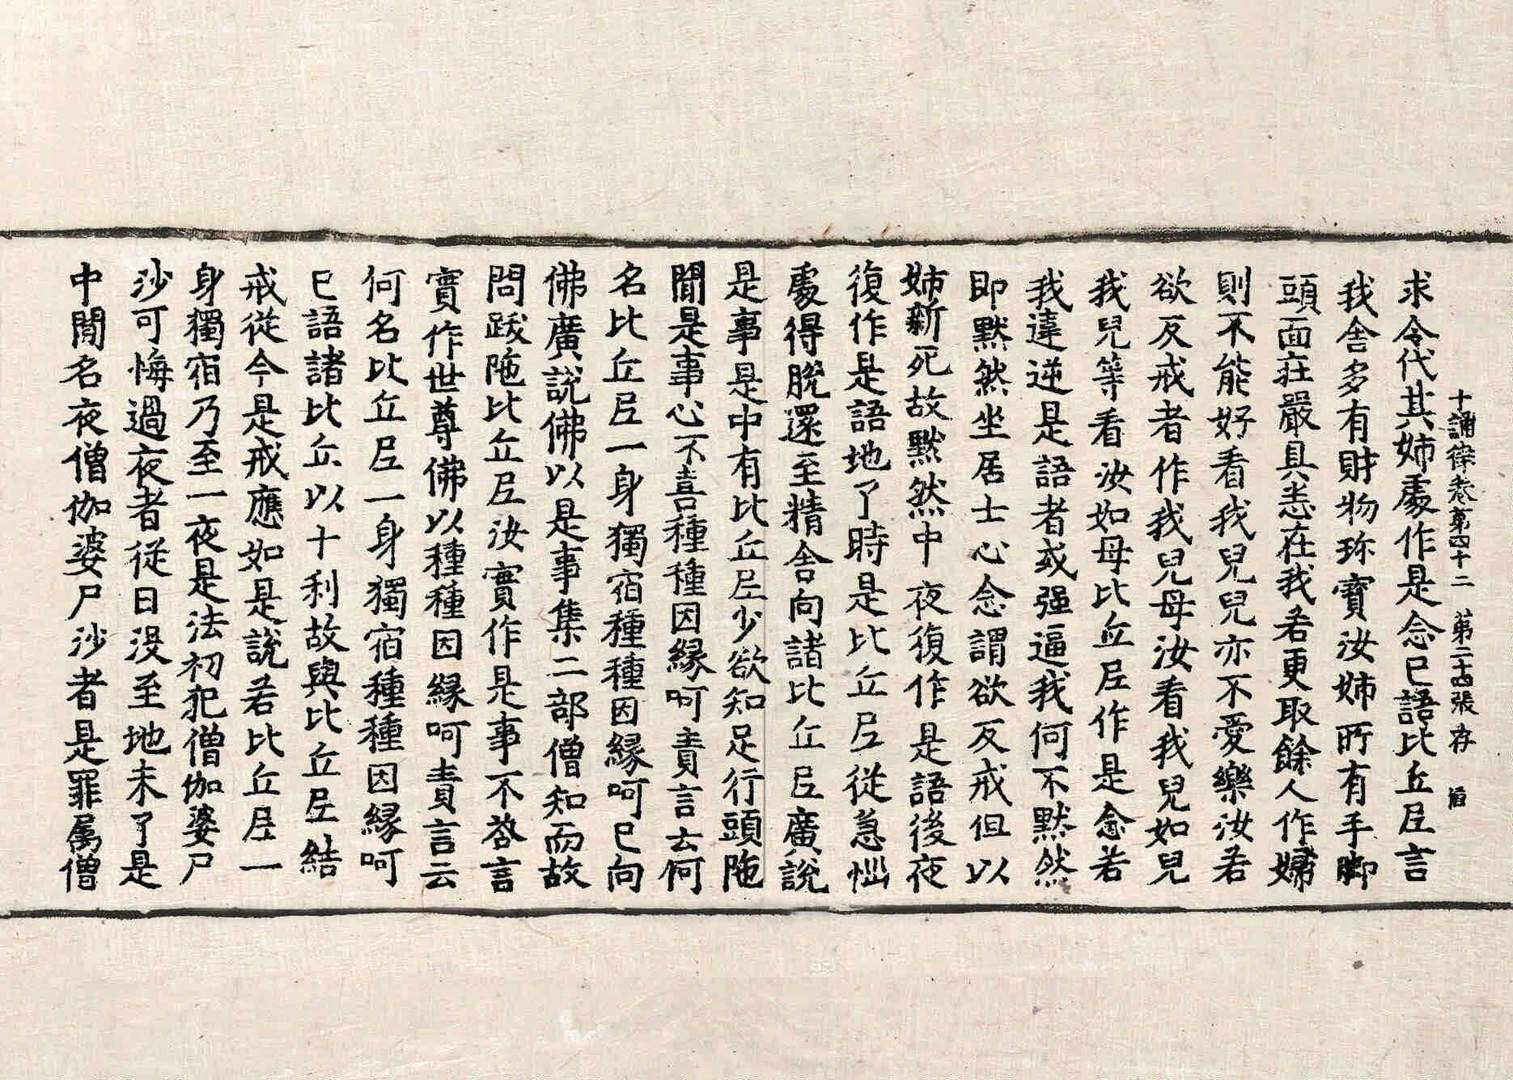 十誦律卷第四十二　第二十四張　存
求令代其姉處作是念已語比丘尼言
我舍多有財物珎寶汝姉所有手脚
頭面莊嚴具恙在我若更取餘人作婦
則不能好看我兒兒亦不愛樂汝若
欲反戒者作我兒母汝看我兒如兒
我兒等看汝如母比丘尼作是念若
我違逆是語者或强逼我何不黙然
即黙然坐居士心念謂欲反戒但以
姉新死故黙然中夜復作是語後夜
復作是語地了時是比丘尼從急惱
處得脫還至精舍向諸比丘尼廣說
是事是中有比丘尼少欲知足行頭陁
聞是事心不喜種種因緣呵責言云何
名比丘尼一身獨宿種種因緣呵已向
佛廣說佛以是事集二部僧知而故
問跋陁比丘尼汝實作是事不荅言
實作世尊佛以種種因緣呵責言云
何名比丘尼一身獨宿種種因緣呵
已語諸比丘以十利故與比丘尼結
戒從今是戒應如是說若比丘尼一
身獨宿乃至一夜是法初犯僧伽婆尸
沙可悔過夜者從日没至地未了是
中閒名夜僧伽婆尸沙者是罪属僧